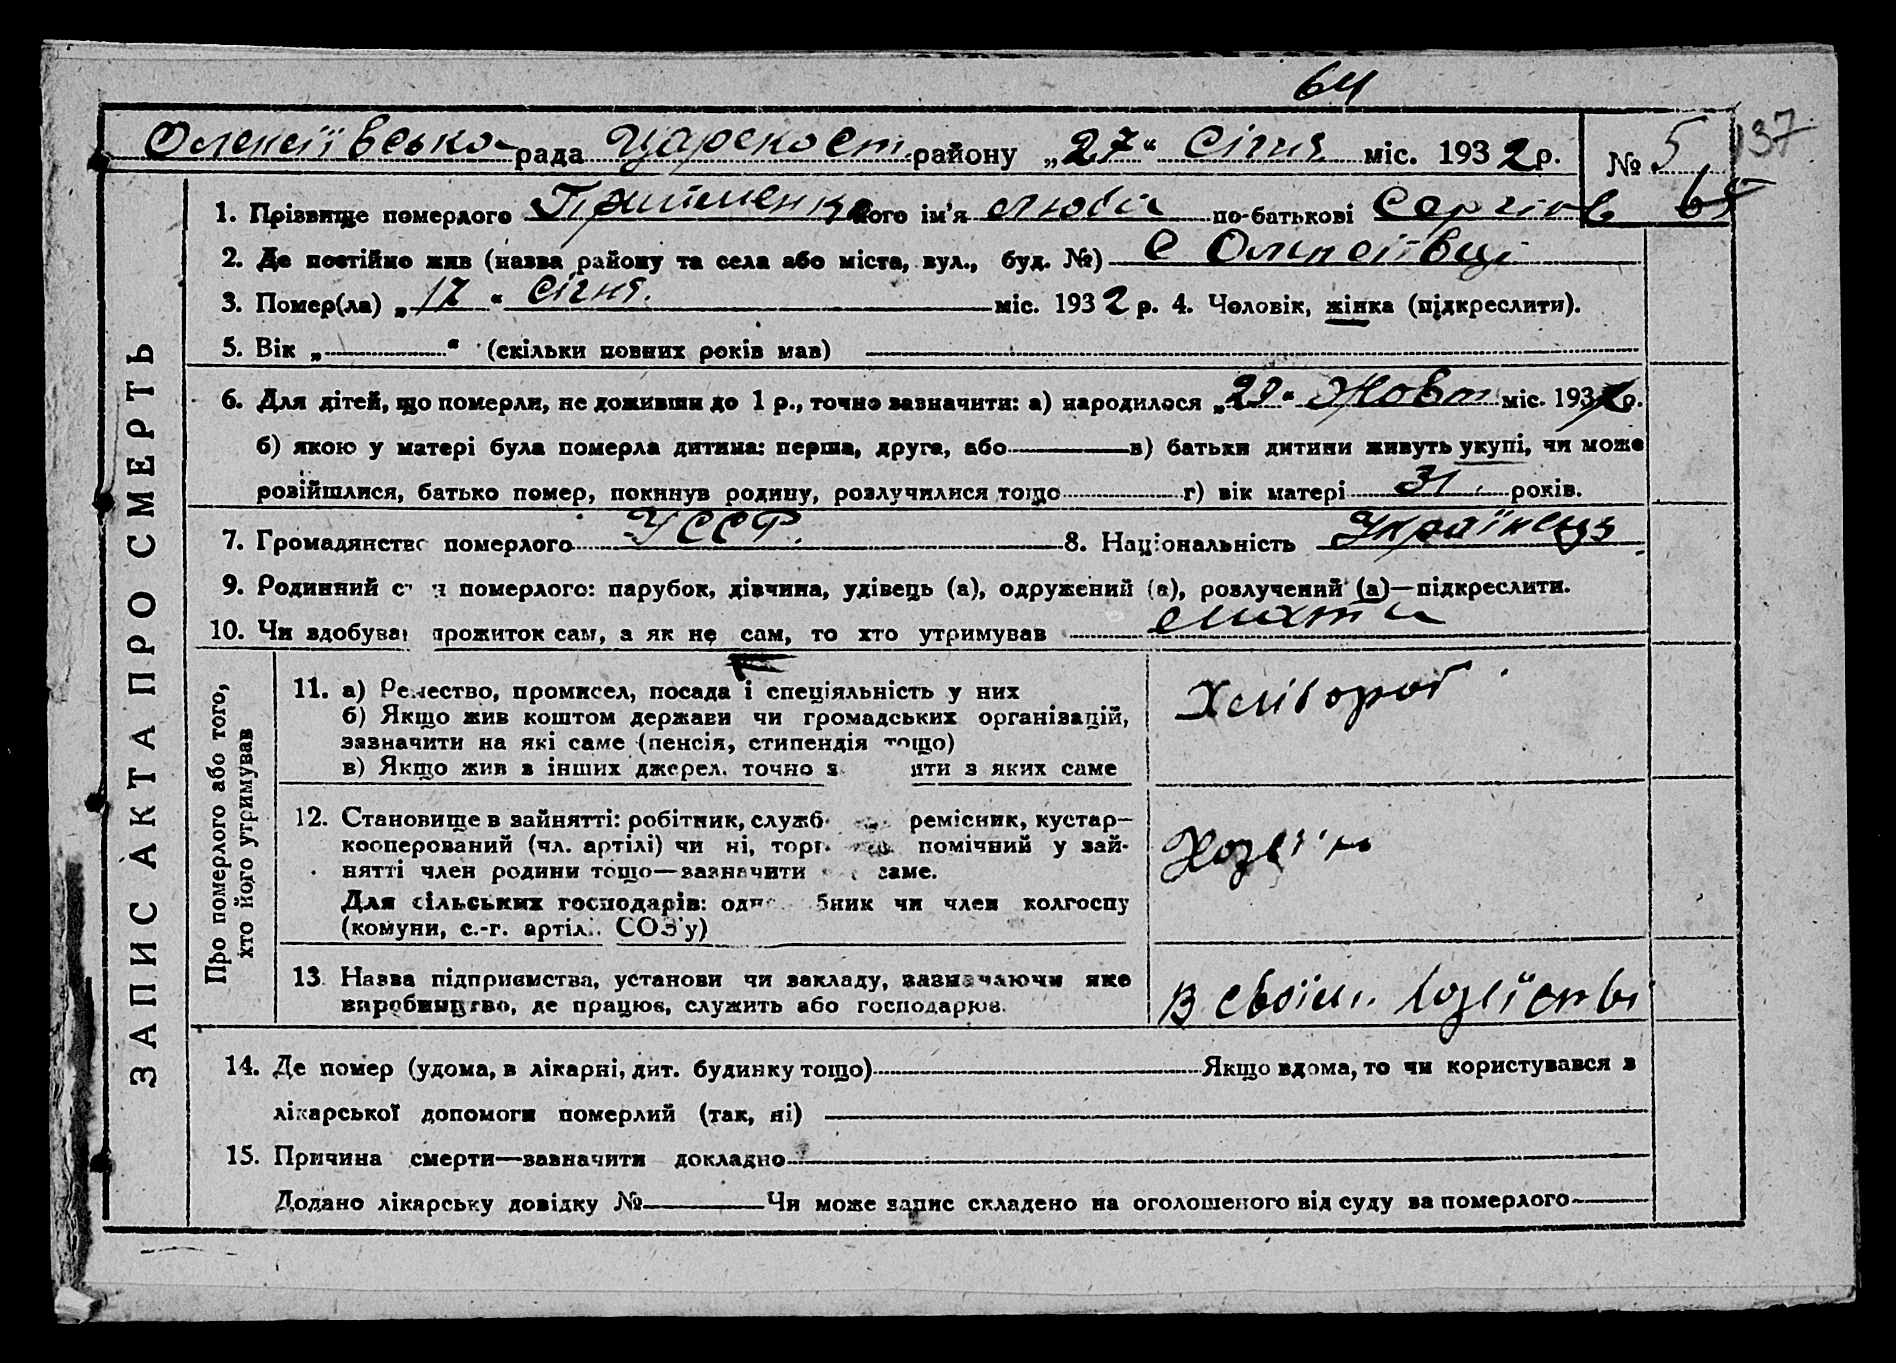 64
Олексіївсько рада Царекост. району „27“ Січня міс. 1932 р. № 5 137
1. Прізвище померлого його ім'я Люба по-батькові Сергіїв
2. Де постійно жив (назва району та села або міста, вул., буд. №) с Олексіївці
3. Помер(ла) „17“ січня. міс. 1932 р. 4. Чоловік, жінка (підкреслити).
5. Вік „ “ (скільки повних років мав)
6. Для дітей, що померли, не доживши до 1 р., точно зазначити: а) народилося „29“ Жовт міс. 193 р.
б) якою у матері була померла дитина: перша, друга, або в) батьки дитини живуть укупі, чи може
розійшлися, батько помер, покинув родину, розлучилися тощо г) вік матері 31 років.
7. Громадянство померлого УССР. 8. Національність Українець
9. Родинний с н померлого: парубок, дівчина, удівець (а), одружений (а), розлучений (а)—підкреслити.
10. Чи здобував прожиток сам, а як не сам, то хто утримував мати
ЗАПИС АКТА ПРО СМЕРТЬ
Про померлого або того,
хто його утримував
11. а) Ремество, промисел, посада і спеціяльність у них
б) Якщо жив коштом держави чи громадських організацій,
зазначити на які саме (пенсія, стипендія тощо)
в) Якщо жив з інших джерел, точно з ити з яких саме
Хлібороб
12. Становище в зайнятті: робітник, служб ремісник, кустар—
кооперований (чл. артілі) чи ні, торг помічний у зай-
нятті член родини тощо—зазначити саме.
Для сільських господарів: одн бник чи член колгоспу
(комуни, с.-г. артілі, СОЗ'у)
Хозяїн
13. Назва підприємства, установи чи закладу, зазначаючи яке
виробництво, де працює, служить або господарює.
В своїм. хозяїстві
14. Де помер (удома, в лікарні, дит. будинку тощо) Якщо вдома, то чи користувався з
лікарської допомоги померлий (так, ні)
15. Причина смерти—зазначити докладно
Додано лікарську довідку № Чи може запис складено на оголошеного від суду за померлого